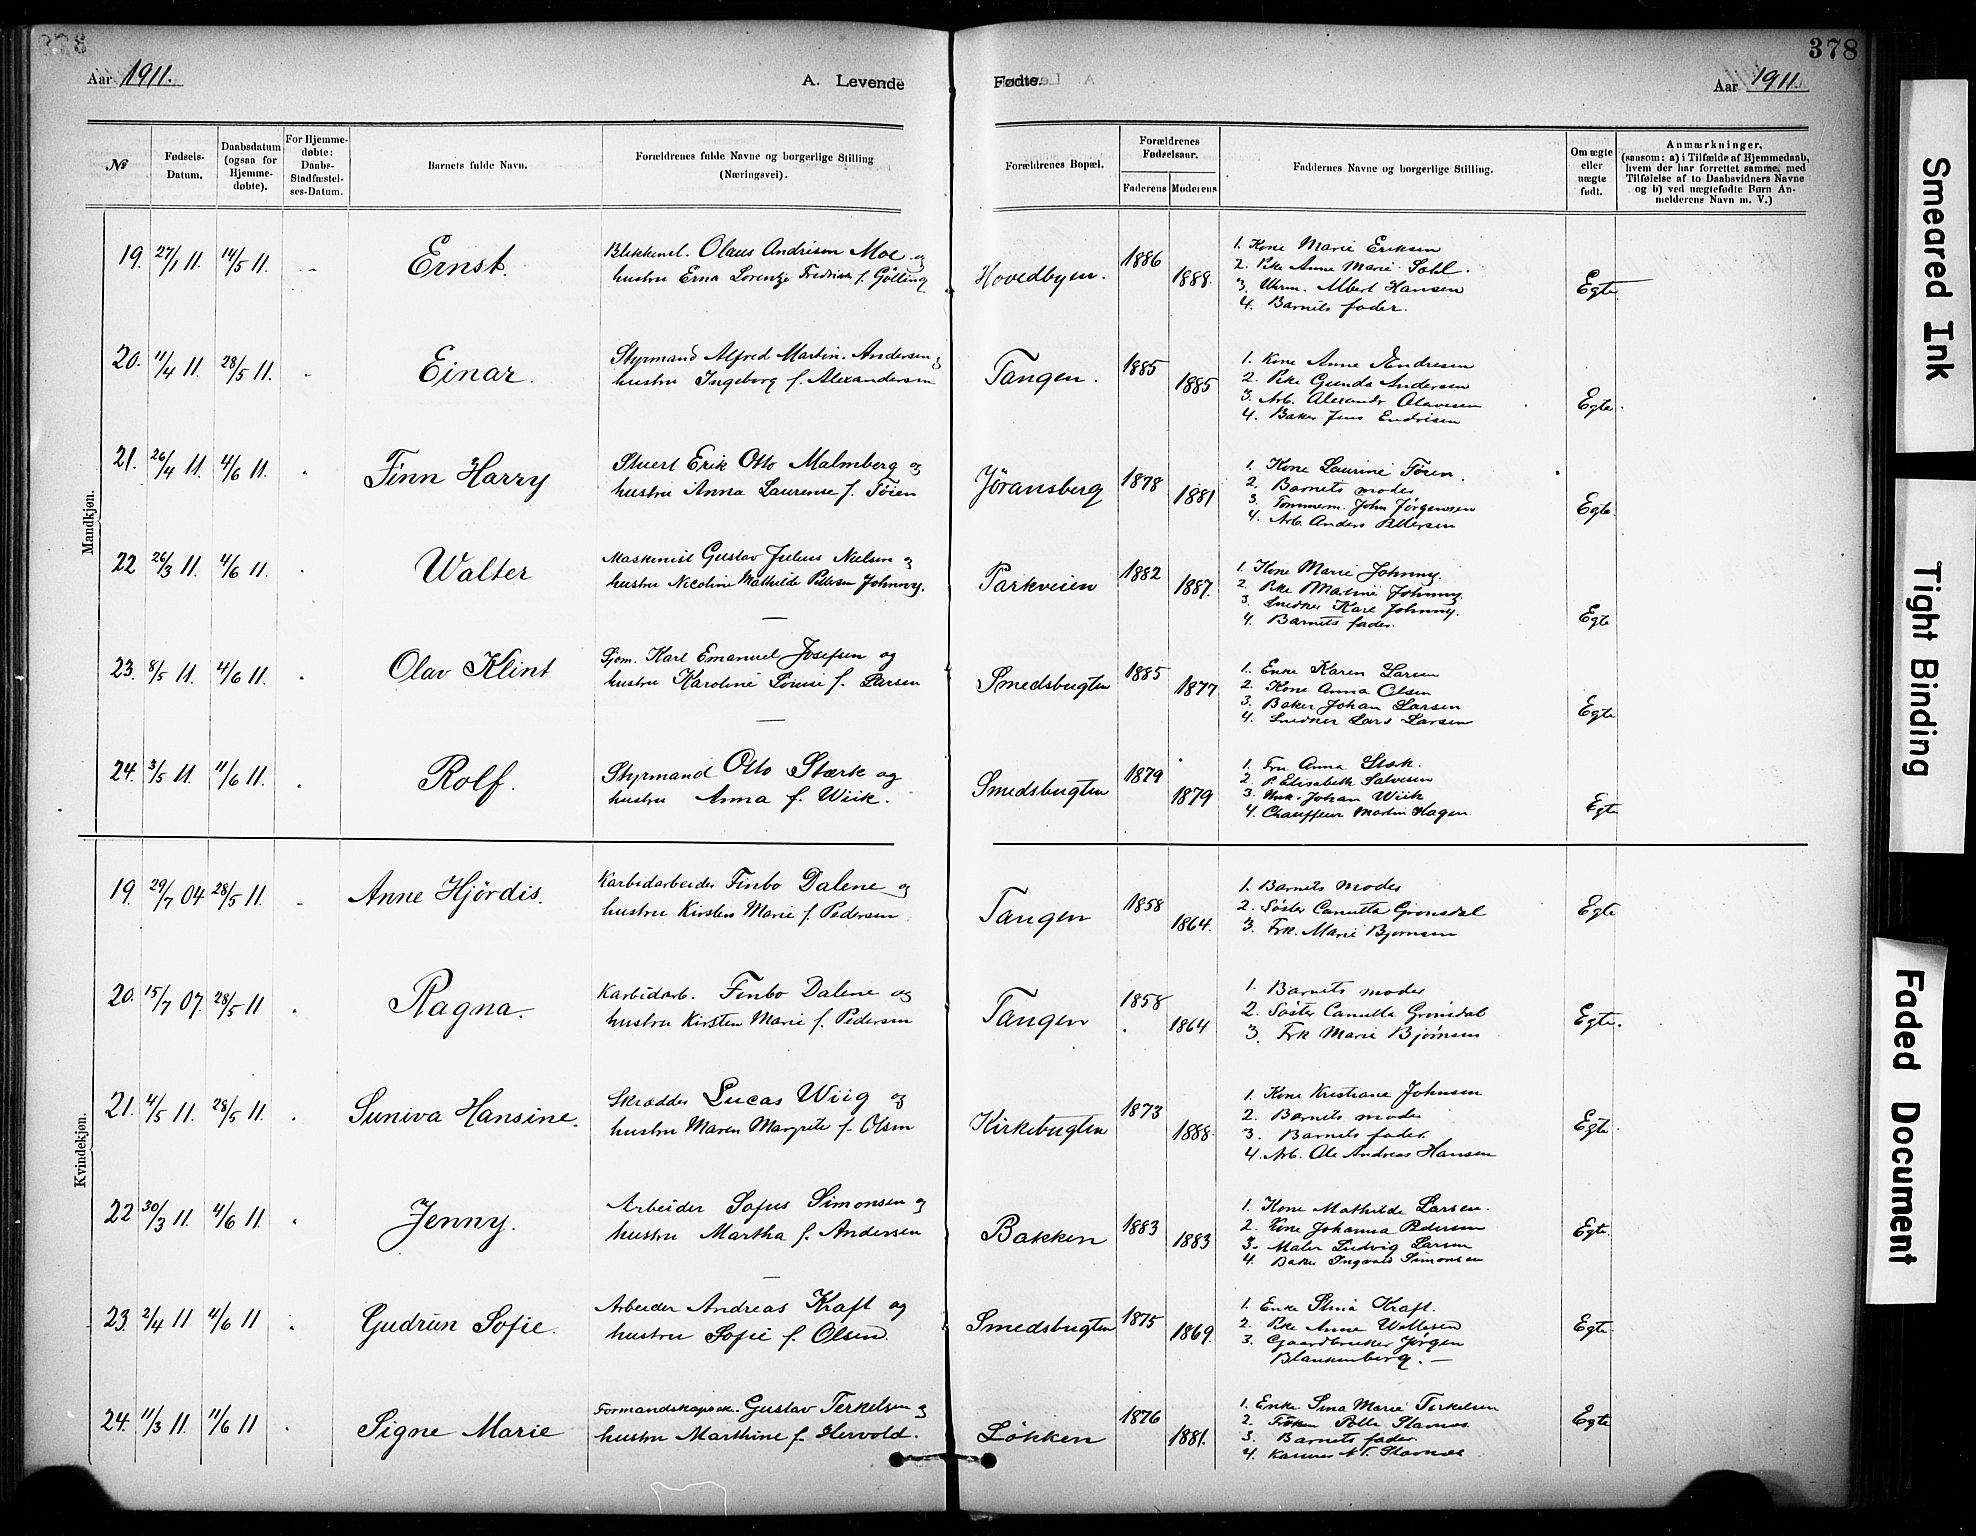 378
Aar 1911. A. Levende Fødte. Aar 1911.
№ Fødsels-Datum. Daabsdatum (ogsaa for Hjemme-døbte). For Hjemme-døbte: Daabs-Stadfæstel-ses-Datum. Barnets fulde Navn. Forældrenes fulde Navne og borgerlige Stilling (Næringsvei). Forældrenes Bopæl. Forældrenes Fødselsaar. Faderens Moderens Faddernes Navne og borgerlige Stilling. Om ægte eller uægte født. Anmærkninger, (saasom: a) i Tilfælde af Hjemmedaab, hvem der har forrettet samme, med Tilføielse af to Daabsvidners Navne og b) ved uægtefødte Børn An-melderens Navn m. V.)
Mandkjøn.
19. 27/1 11. 14/5 11. Ernst. Hovedbyen. 1886 1888. Egte
Blikkensl. Olaus Andrisen Moe og
hustru Erna Lorentze Fredrikke f. Gölling
1. Kone Marie Eriksen
2. Pike Anne Marie Sohl.
3. Urm. Albert Hansen
4. Barnets fader.
20. 11/4 11. 28/5 11. Einar. Tangen. 1885 1885 Egte.
Styrmand Alfred Martin Andersen og
hustru Ingeborg f. Alexandersen
1. Kone Anne Andresen
2. Pike Gunda Andersen
3. Arb. Alexander Olavesen
4. Baker Jens Endrisen
21. 26/4 11. 4/6 11. Finn Harry Jøransberg 1878 1881 Egte.
Stuert Erik Otto Malmberg og
hustru Anna Laurense f. Tøsen
1. Kone Laurine Tøsen.
2. Barnets moder
3. Tømmerm. John Jørgensen
4. Arb. Anders Pettersen
22 26/3 11. 4/6 11. Walter Parkveien 1882 1887. Egte
Maskinist Gustav Julius Nielsen og
hustru Nicoline Mathilde Petersen Johnny.
1. Kone Marie Johnny.
2. Pike Martine Johnny.
3. Snedker Karl Johnny.
4. Barnets fader.
23. 8/5 11. 4/6 11. Olav Klint Smedsbugten 1885 1877 Egte
Sjøm. Karl Emanuel Josefsen og
hustru Karoline Lovise f. Larsen
1. Enke Karen Larsen
2. Kone Anna Olsen
3. Baker Johan Larsen
4. Snedker Lars Larsen
24. 3/5 11. 11/6 11. Rolf. Smedsbugten 1879 1879 Egte
Styrmand Otto Stærk og
hustru Anna f. Wiik.
1. Fru Anna
2. P. Elisabeth Salvesen
3. Johan Wiik
4. Chauffeur Martin Hagen.
Kvindekjøn.
19. 29/7 04 28/5 11. Anne Hjørdis. Tangen 1858 1864. Egte
Karbidarbeider Finbo Dalene og
hustru Kirsten Marie f. Pedersen
1. Barnets moder
2. Søster Camilla Grønsdal
3. Frk. Marie Bjørnsen
20. 15/7 07. 28/5 11 Ragna. Tangen 1858 1864 Egte.
Karbidarb. Finbo Dalene og
hustru Kirsten Marie f. Pedersen
1. Barnets moder
2. Søster Camilla Grønsdal
3. Frk Marie Bjørnsen
21. 4/5 11. 28/5 11. Suniva Hansine. Kirkebugten 1873 1888. Egte
Skrædder Lucas Wiig og
hustru Maren Margrete f. Olsen
1. Kone Kristiane Johnsen
2. Barnets moder
3. Barnets fader.
4. Arb. Ole Andreas Hansen
22 30/3 11. 4/6 11. Jenny. Bakken 1883 1883 Egte.
Arbeider Sofus Simonsen og
hustru Martha f. Andersen
1. Kone Mathilde Larsen.
2. Kone Johanna Pedersen
3. Maler Ludvig Larsen
4. Baker Ingvald Simonsen
23. 2/4 11 4/6 11 Gudrun Sofie. Smedsbugten 1875 1869. Egte.
Arbeider Andreas Kraft og
hustru Sofie f. Olsen.
1. Enke Stina Kraft.
2. Pike Anne
3. Gaardbruker Jørgen
Blankenberg.
24. 11/3 11. 11/6 11 Signe Marie Løkken 1876 1881. Egte
Formandskapssek. Gustav Terkelsen og
hustru Marthine f. Hervold.
1. Enke Sina Marie Terkelsen
2. Frøken
3. Barnets fader
4.
Smeared Ink
Tight Binding
Faded Document